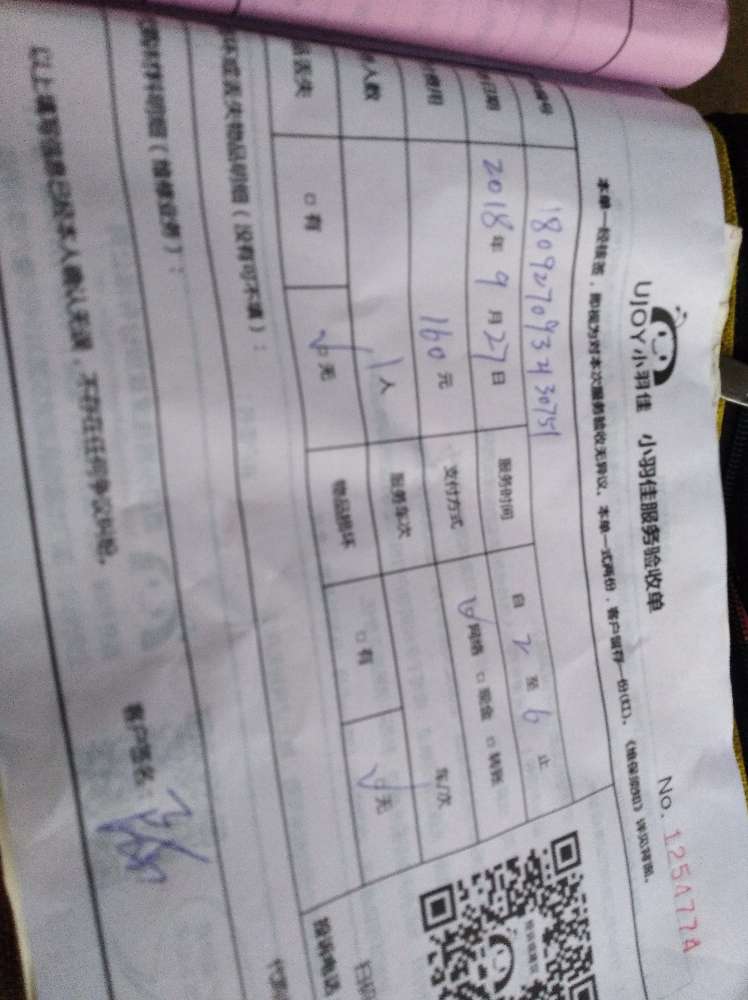 UJOY小羽佳 小羽佳服务验收单 No.1254774
本单一经核签，即视为对本次服务验收无异议。本单一式两份，客户留存一份(红)。《维保须知》详见背面。
编号 1809270932430751
日期 2018年9月27日 服务时间 自 2 至 6 止
费用 160元 支付方式 网络 现金 转账
人数 1人 服务车次 车/次
丢失 有 无 物品损坏 有 无
坏或丢失物品明细（没有可不填）：
购材料明细（维修业务）：
以上填写信息已经本人确认无误，不存在任何争议纠纷。 客户签名：
投诉电话